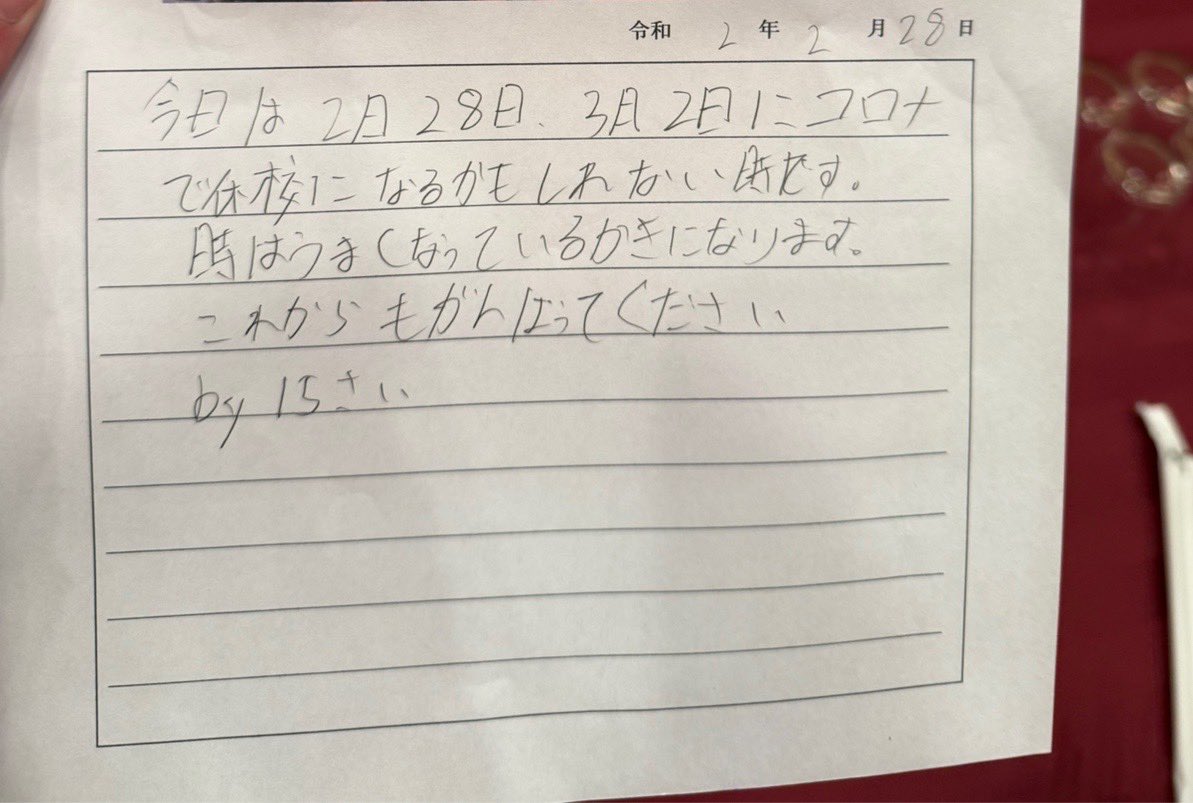 令和 2 年 2 月 28 日
今日は 2月 28日、3月 2日にコロナ
で休校になるかもしれない時です。
時はうまくなっているかきになります。
これからもがんばってください
by 15さい